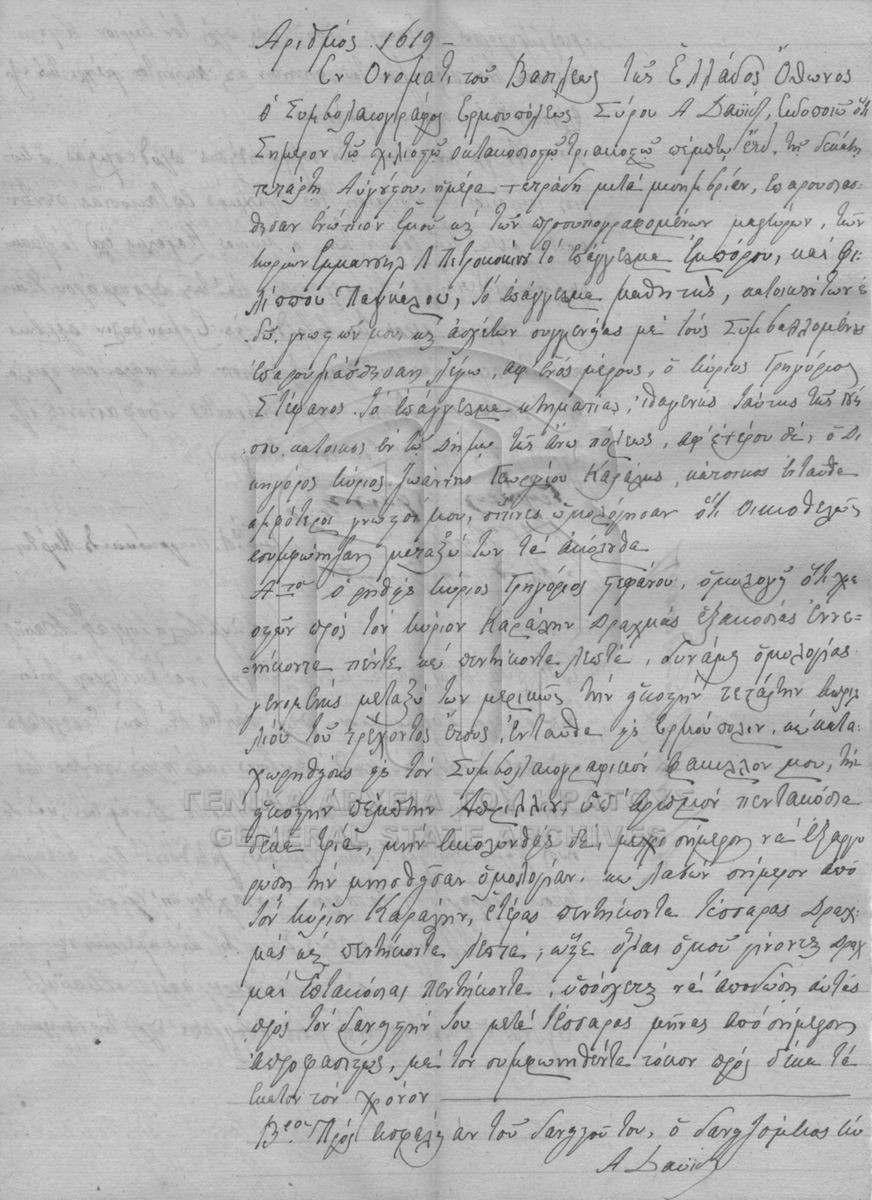 Αριθμός 1619 –
Εν Ονοματι του Βασιλεως της Ελλάδος Όθωνος
Ο Συμβολαιογράφος Ερμουπόλεως Σύρου Α Δαυίδ, ειδοποιώ ότι
Σήμερον τω χιλιοστώ οκτακοσιοστώ τριακοστώ πέμπτω έτει, τη δεκάτη
τετάρτη Αύγούστου, ημέρα τετράδη μετά μεσημβρίαν, επαρουσιάσ-
θησαν ενώπιον εμού και των προσυπογραφομένων μαρτύρων, των
κυρίων Εμμανουήλ Λ Πετροκόκινου το επάγγελμα Εμπόρου, και Φι-
λίππου Παγκάλου, το επάγγελμα μαθητής, κατοικούντων ε
δω, γνωστών μου και ασχέτων συγγενείας με τούς Συμβαλλομένους
επαρουσιάσθησαν λέγω, αφ ενός μέρους, ο κύριος Γρηγόριος
Στέφανος το επάγγελμα κτηματίας, ιθαγενής ταύτης της νή-
σου κατοικος εν τω Δήμω της άνω πόλεως, αφ' ετέρου δε, ο Δι
κηγόρος κύριος Ιωάννης Γεωργίου Καράλης, κάτοικος ενταύθα
αμφότεροι γνωστοί μου, οίτινες ωμολόγησαν ότι οικιοθελώς
εσυμφώνησαν μεταξύ των τα ακόλουθα
Α.ον ο ρηθείς κύριος Γρηγόριος Στεφάνου, ομολογεί ότι χρε
οστών πρός τον κύριον Καράλην Δραχμάς εξακοσίας εννε-
=νήκοντα πέντε και πεντήκοντα λεπτά, δυνάμει ομολογίας
γενομένης μεταξύ των μερικώς την εικοστήν τετάρτην Απριλ
λίου του τρέχοντος έτους, ενταύθα εις Ερμούπολιν, και κατα-
χωρηθείσης εις τον Συμβολαιογραφικόν φακελλον μου, την
εικοστήν πεμπτην Απριλλίου, υπ' αριθμόν πεντακόσια
δεκα τρία, μήν ευκολυνθείς δε, μέχρι σήμερον να εξαργυ
ρώση την μνησθείσαν ομολογίαν, και λαβών σήμερον από
τον κύριον Καράλην, ετέρας πεντήκοντα τέσσαρας Δραχ-
μάς και πεντήκοντα λεπτά, ώστε όλας ομού γίνονται Δραχ
μαί επτακόσιαι πεντήκοντα, υπόσχεται να αποδώση αυτάς
πρός τον δανειστήν του μετά τέσσαρας μήνας από σήμερον
απροφασίστως, με τον συμφωνηθέντα τόκον πρός δέκα τα
εκατόν τον χρόνον
Β.ον Πρός ασφάλειαν του δανειστού του, ο δανειζόμενος κύ
Α Δαυίδ
ΓΕΝΙΚΑ ΑΡΧΕΙΑ ΤΟΥ ΚΡΑΤΟΥΣ
GENERAL STATE ARCHIVES